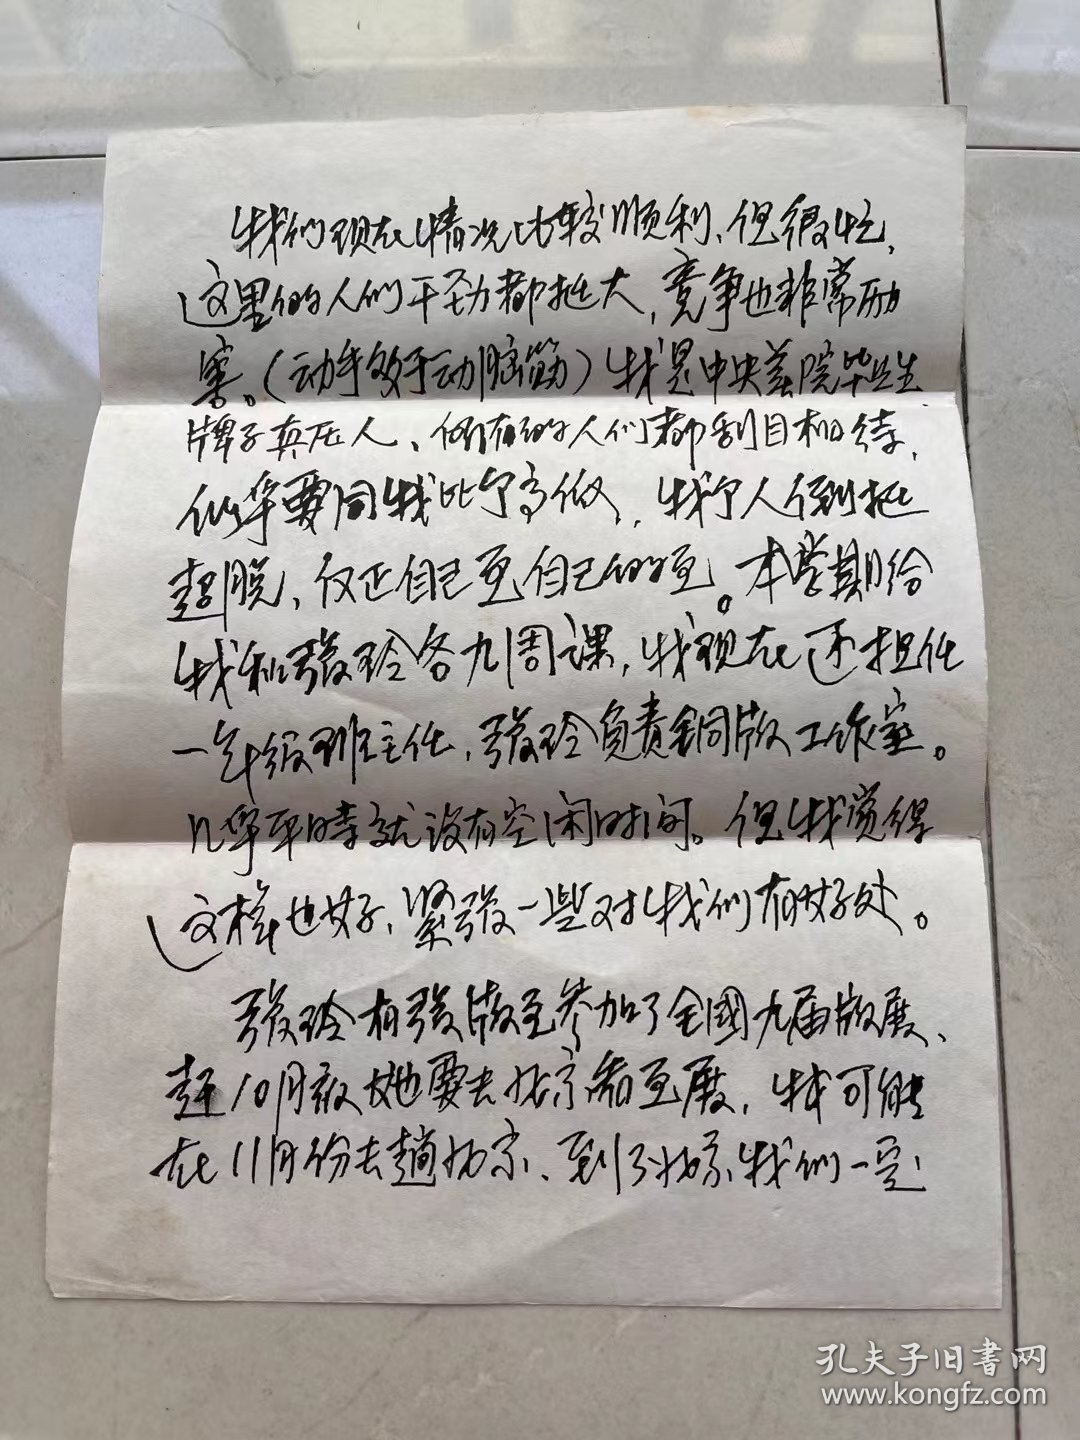 我们现在情况比较顺利、但很忙，
这里的人们干劲都挺大，竞争也非常历
害。（动手多于动脑筋）我是中央美院毕业生，
牌子真压人、所有的人们都刮目相待，
似乎要同我比个高低，我个人倒挺
超脱、反正自己画自己的画。本学期给
我和张玲各九周课，我现在还担任
一年级班主任，张玲负责铜版工作室。
几乎平时就没有空闲时间。但我觉得
这样也好、紧张一些对我们有好处。
张玲有张版画参加了全國九届版展、
赶10月夜她要去北京看画展，我可能
在11月份去趟北京、到了北京我们一定
孔夫子旧書网
www.kongfz.com